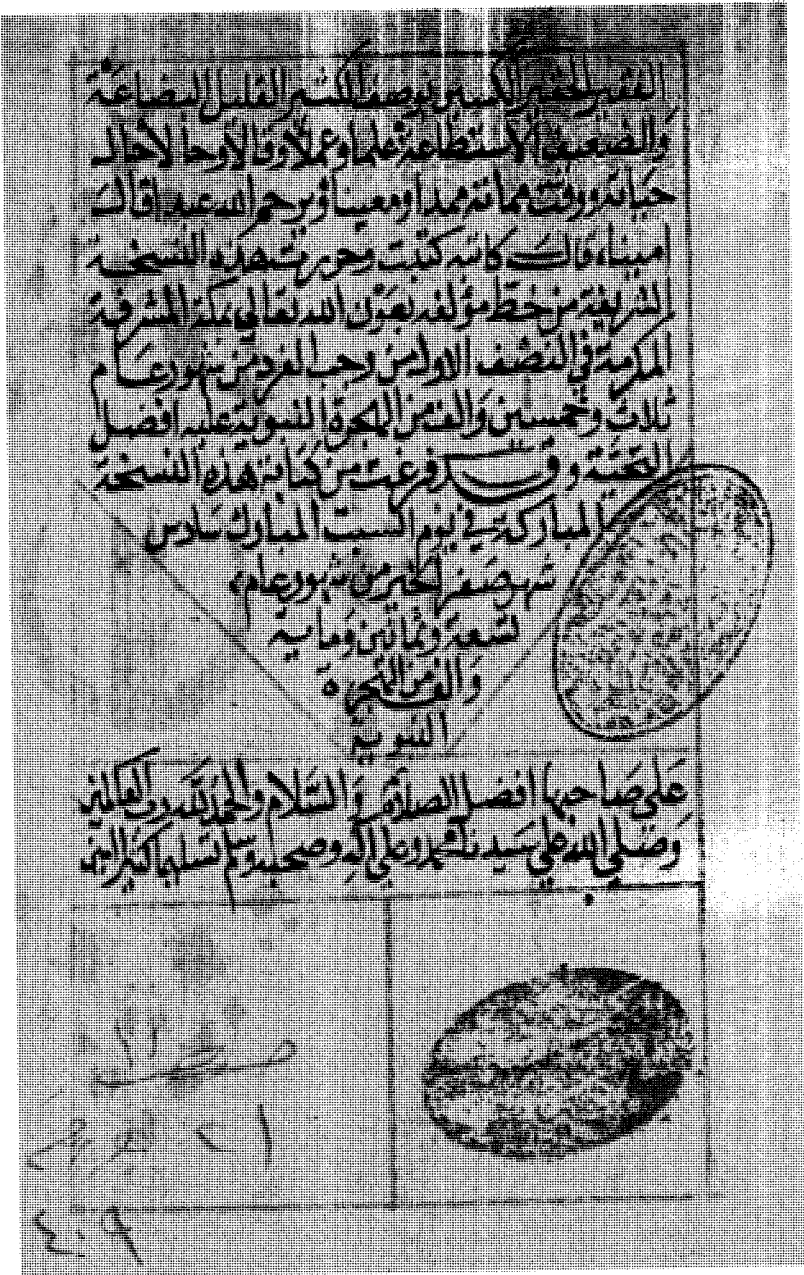 الفقير الحقير الكسير بوصف الكثير القليل البضاعة
والضعيف الاستطاعة علما وعملا وقالا وحالا حاله
حياته ووقت مماته ممدا ومعينا ويرحم الله عبدا قال
امينا، قال كاتبه كتبت وحررت هذه النسخة
الشريفة من خط مؤلفه بعون الله تعالى بمكة المشرفة
المكرمة في النصف الاول من رجب الفرد من شهور عام
ثلاث وخمسين والف من الهجرة النبوية عليه افضل
التحية وقد فرغت من كتابة هذه النسخة
المباركة في يوم السبت المبارك سادس
شهر صفر الخير من شهور عام
تسعة وثمانين ومايية
والف من الهجرة
النبوية
على صاحبها افضل الصلاة والسلام والحمد لله رب العالمين
وصلى الله على سيدنا محمد وعلى اله وصحبه وسلم تسليما كثيرا امين
٤٠٩